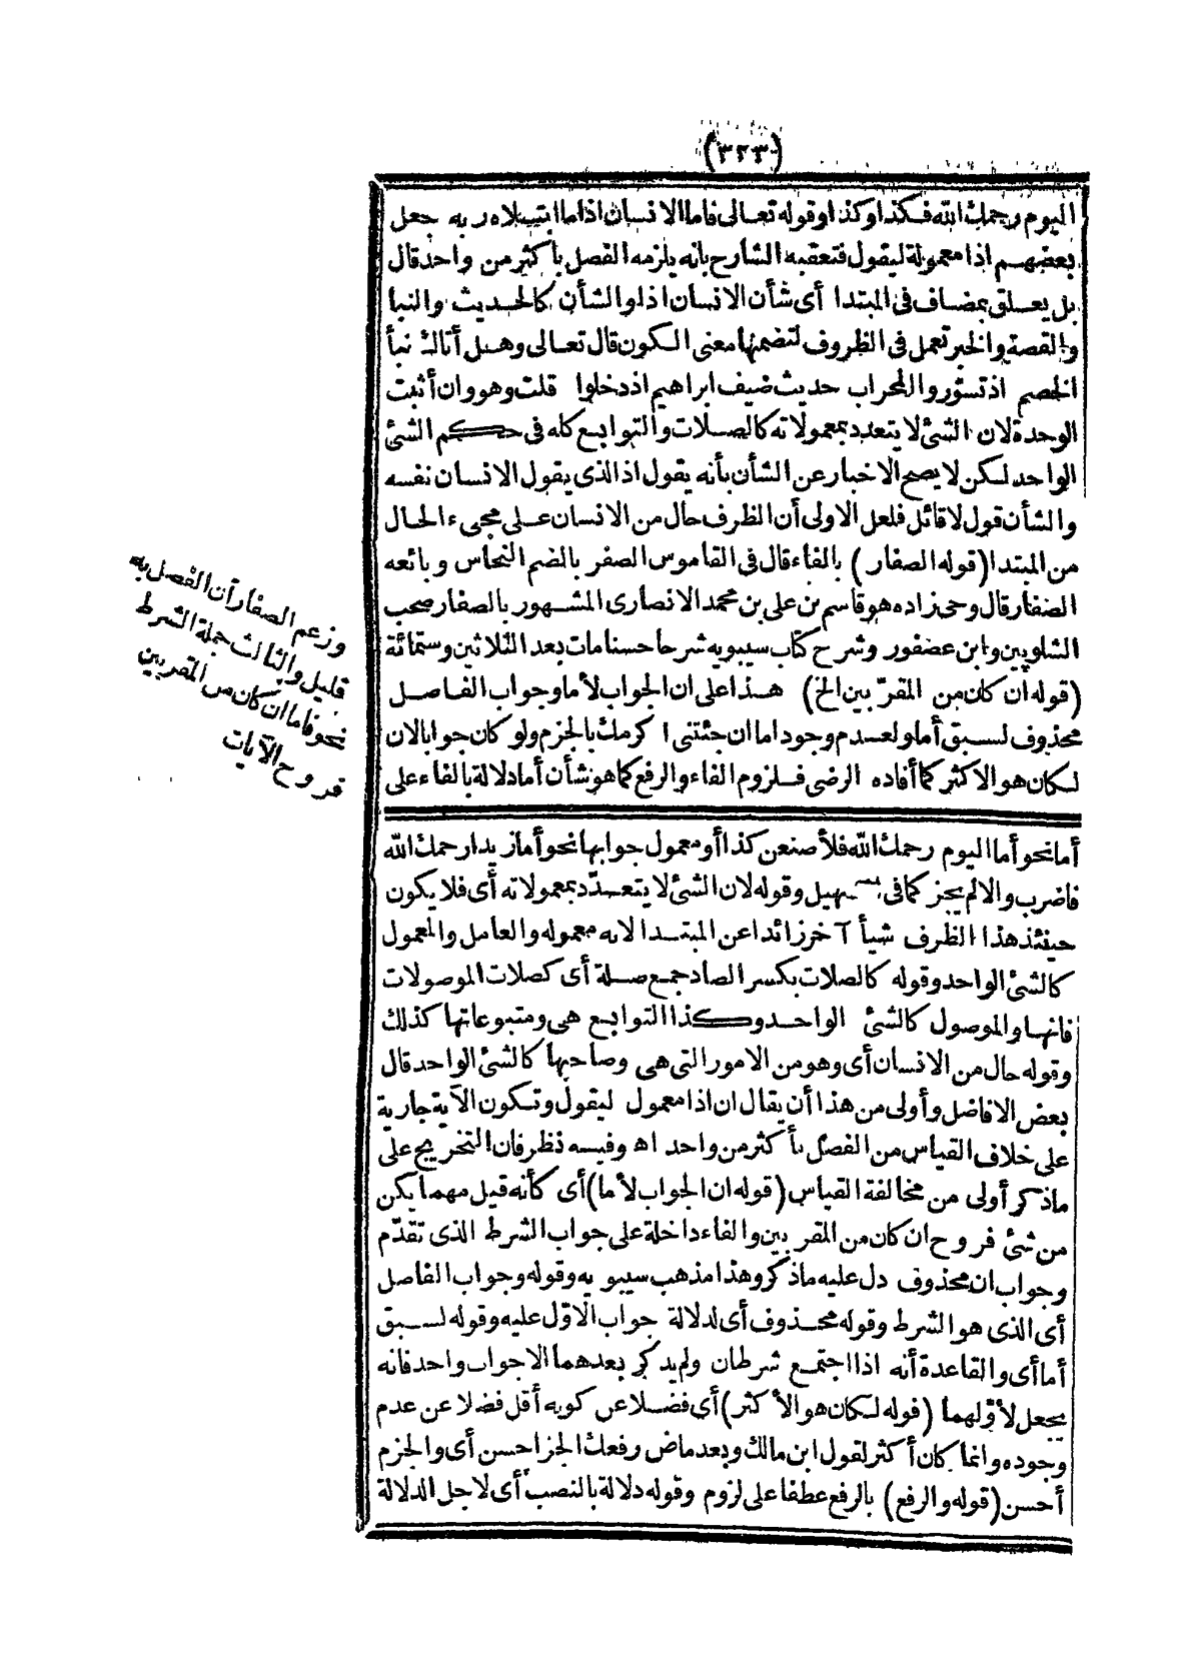 (٣٢٣)
اليوم رحمك الله فكذا وكذا وقوله تعالى فاما الانسان اذا ما ابتلاه ربه جعل
بعضهم اذا معمولة ليقول فتعقبه الشارح بانه يلزمه الفصل بأكثر من واحد قال
بل يعلق بمضاف فى المبتدا أى شأن الانسان اذا والشأن كالحديث والنبا
والقصة والخبر تعمل فى الظروف لتضمنها معنى الكون قال تعالى وهل أتاك نبأ
الخصم اذ تسوّر والمحراب حديث ضيف ابراهيم اذ دخلوا قلت وهو وان أثبت
الوحدة لان الشئ لا يتعدد بمعمولاته كالصلات والتوابع كله فى حكم الشئ
الواحد لكن لا يصح الاخبار عن الشأن بأنه يقول اذ الذى يقول الانسان نفسه
والشأن قول لا قائل فلعل الاولى أن الظرف حال من الانسان على مجىء الحال
من المبتدا (قوله الصفار) بالفاء قال فى القاموس الصفر بالضم النحاس وبائعه
الصفار قال وحى زاده هو قاسم بن على بن محمد الانصارى المشهور بالصفار صحب
الشلوبين وابن عصفور وشرح كتاب سيبويه شرحا حسنا مات بعد الثلاثين وستمائة
(قوله ان كان من المقرّبين الخ) هذا على ان الجواب لأما وجواب الفاصل
محذوف لسبق أما ولعدم وجود اما ان جئتنى اكرمك بالجزم ولو كان جوابا لان
لكان هو الاكثر كما أفاده الرضى فلزوم الفاء والرفع كما هو شأن أما دلالة بالفاء على
وزعم الصفار أن الفصل به
قليل والثالث جملة الشرط
نحو فاما ان كان من المقربين
فروح الآيات
أما نحو أما اليوم رحمك الله فلأصنعن كذا أو معمول جوابها نحو أما زيدا رحمك الله
فاضرب والا لم يجز كما فى وقوله لان الشئ لا يتعدّد بمعمولاته أى فلا يكون
حينئذ هذا الظرف شيأ آخر زائدا عن المبتدا لانه معموله والعامل والمعمول
كالشئ الواحد وقوله كالصلات بكسر الصاد جمع صلة أى كصلات الموصولات
فانها والموصول كالشئ الواحد وكذا التوابع هى ومتبوعاتها كذلك
وقوله حال من الانسان أى وهو من الامور التى هى وصاحبها كالشئ الواحد قال
بعض الافاضل وأولى من هذا أن يقال ان اذا معمول ليقول وتكون الآية جارية
على خلاف القياس من الفصل بأكثر من واحد اه وفيه نظر فان التخريج على
ماذكر أولى من مخالفة القياس (قوله ان الجواب لأما) أى كأنه قيل مهما يكن
من شئ فروح ان كان من المقربين والفاء داخلة على جواب الشرط الذى تقدّم
وجواب ان محذوف دل عليه ماذكر وهذا مذهب سيبويه وقوله وجواب الفاصل
أى الذى هو الشرط وقوله محذوف أى لدلالة جواب الاوّل عليه وقوله لسبق
أما أى والقاعدة أنه اذا اجتمع شرطان ولم يذكر بعدهما الا جواب واحد فانه
يجعل لأوّلهما (قوله لكان هو الأكثر) أى فضلا عن كونه أقل فضلا عن عدم
وجوده وانما كان أكثر لقول ابن مالك وبعد ماض رفعك الجزا حسن أى والجزم
أحسن (قوله والرفع) بالرفع عطفا على لزوم وقوله دلالة بالنصب أى لاجل الدلالة